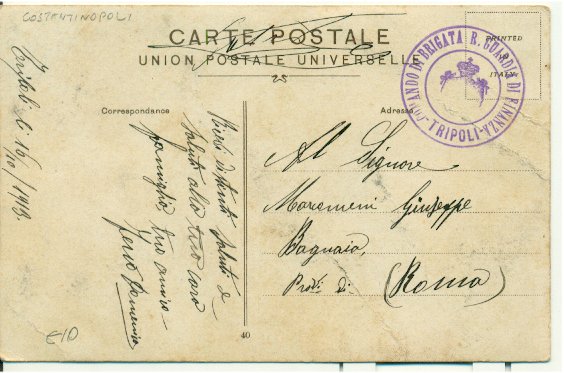 COSTENTINOPOLI
CARTE POSTALE
UNION POSTALE UNIVERSELLE
PRINTED
ITALY
COMANDO DI BRIGATA R. GUARDIA DI FINANZA
-TRIPOLI-
Correspondance
Adresse
Tripoli li 16/10/1913.
distinti saluti e
saluto alla tua cara
famiglia tuo amico
Al Signore
Maremeni Giuseppe
Bagnaia,
Prov. di (Roma)
€10
40